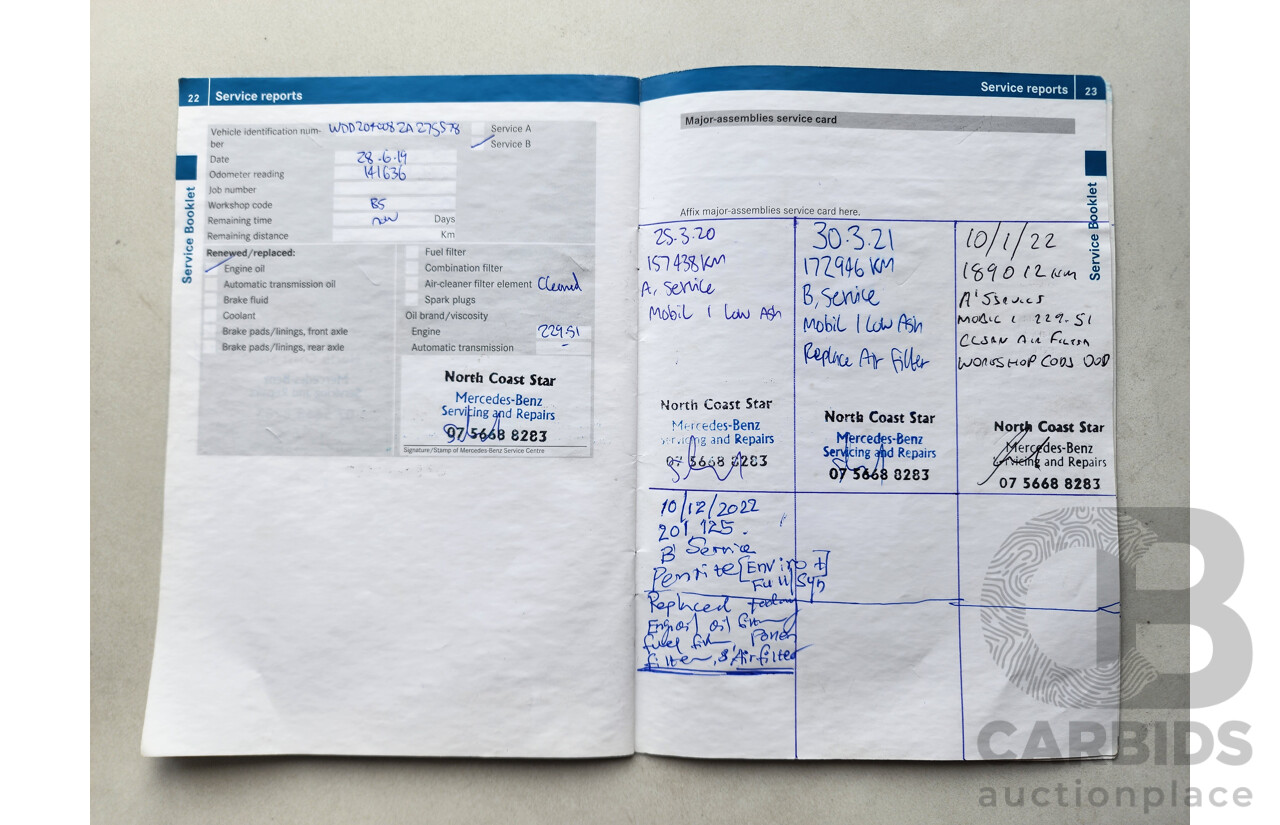 22 Service reports
Vehicle identification num-
ber
WDD204082A275578
Service A
Service B
Date 28.6.19
Odometer reading 141636
Job number
Workshop code BS
Remaining time now Days
Remaining distance Km
Renewed/replaced:
Engine oil
Automatic transmission oil
Brake fluid
Coolant
Brake pads/linings, front axle
Brake pads/linings, rear axle
Fuel filter
Combination filter
Air-cleaner filter element Cleaned
Spark plugs
Oil brand/viscosity
Engine 229.51
Automatic transmission
North Coast Star
Mercedes-Benz
Servicing and Repairs
07 5668 8283
Signature/Stamp of Mercedes-Benz Service Centre
Service Booklet
Service reports 23
Major-assemblies service card
Affix major-assemblies service card here.
Service Booklet
25.3.20
157438KM
A, Service
Mobil 1 Low Ash
North Coast Star
Mercedes-Benz
Servicing and Repairs
07 5668 8283
30.3.21
172946 KM
B, Service
Mobil 1 Low Ash
Replace Air Filter
North Coast Star
Mercedes-Benz
Servicing and Repairs
07 5668 8283
10/1/22
189012 KM
A'SERVICE
MOBIL 1 229.51
CLEAN AIR FILTER
WORKSHOP CODE 000
North Coast Star
Mercedes-Benz
Servicing and Repairs
07 5668 8283
10/12/2022
201 125.
B' Service
Penrite [Enviro +]
Full Syn
Replaced
oil
fuel
filter, & Air filter
CB
CARBIDS
auctionplace